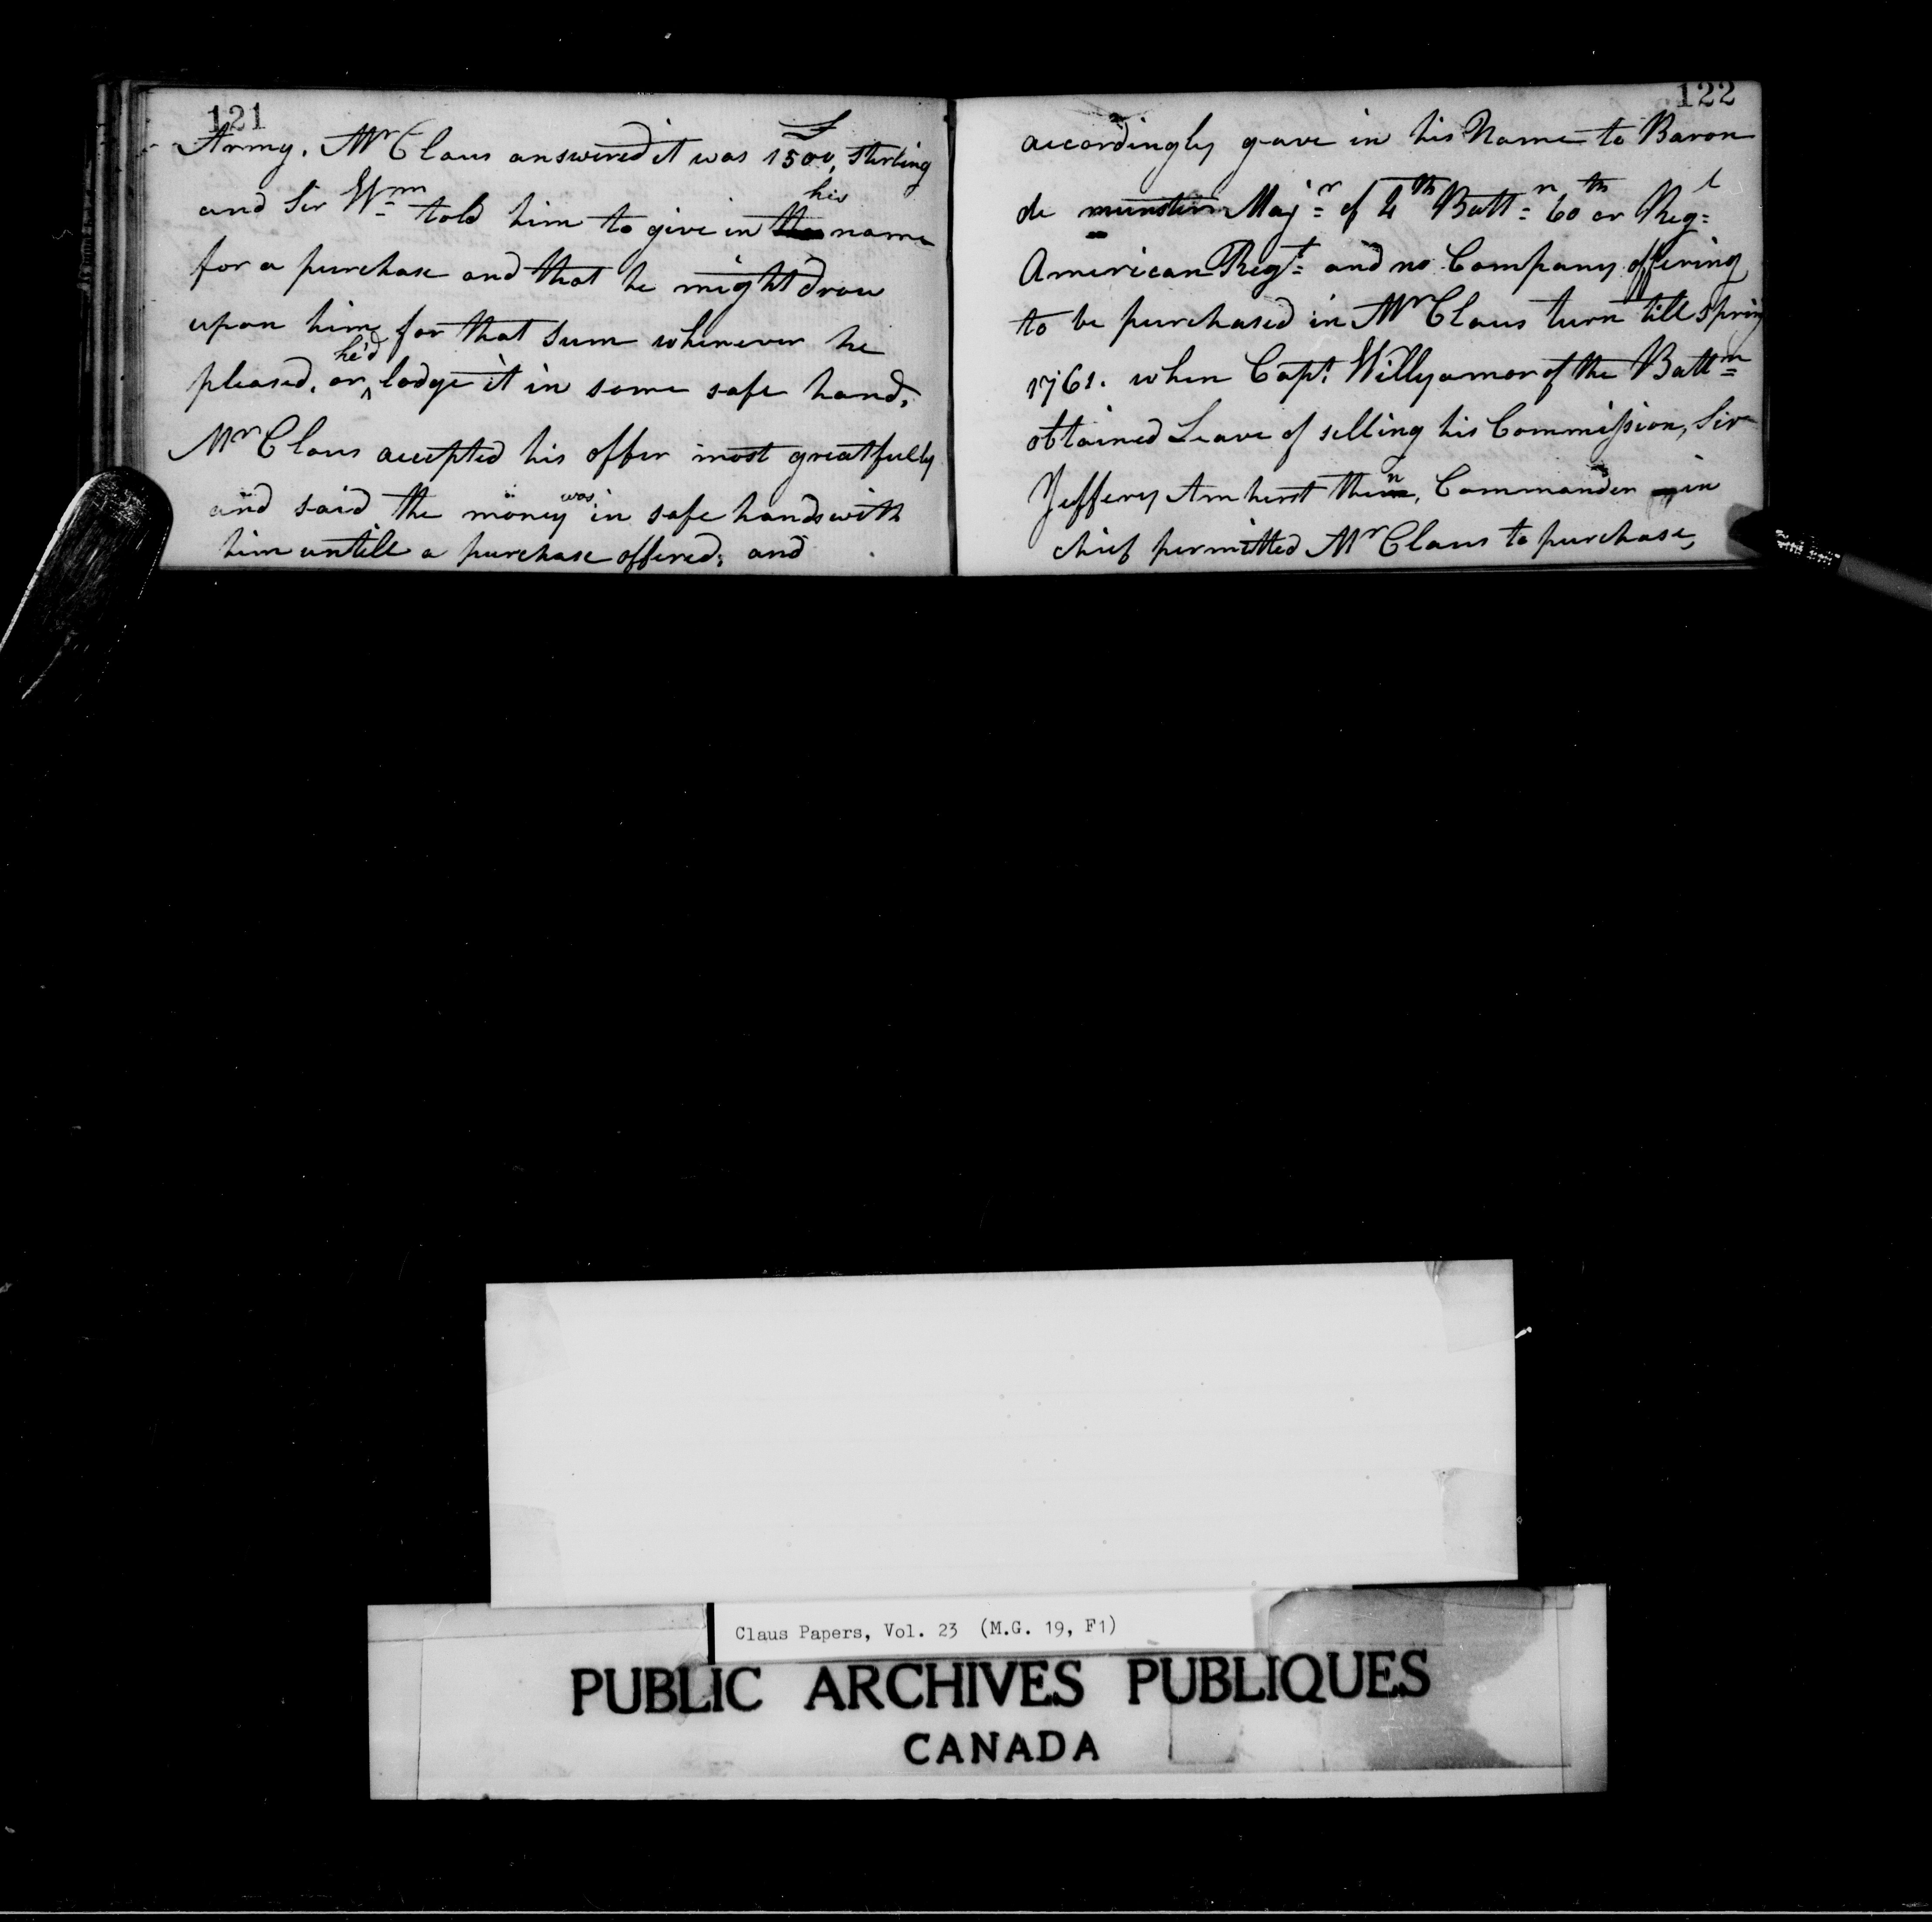 121
Army. Mr Claus answered it was £1500, Sterling
and Sir Wm told him to give in the his name
for a purchase and that he might draw
upon him for that Sum whenever he
pleased, or he'd lodge it in some safe hand,
Mr Claus accepted his offer most greatfully
and said the money was in safe hands with
him untill a purchase offered; and
122
accordingly gave in his Name to Baron
de munstern Majr of 4th Battn 60th or Regl
American Regt and no Company offering
to be purchased in Mr Claus turn till spring
1761. when Capt Willyamor of the Battn
obtained Leave of selling his Commission, Sir
Jeffery Amherst then, Commander in
chief permitted Mr Claus to purchase,
Claus Papers, Vol. 23 (M.G. 19, F1)
PUBLIC ARCHIVES PUBLIQUES
CANADA